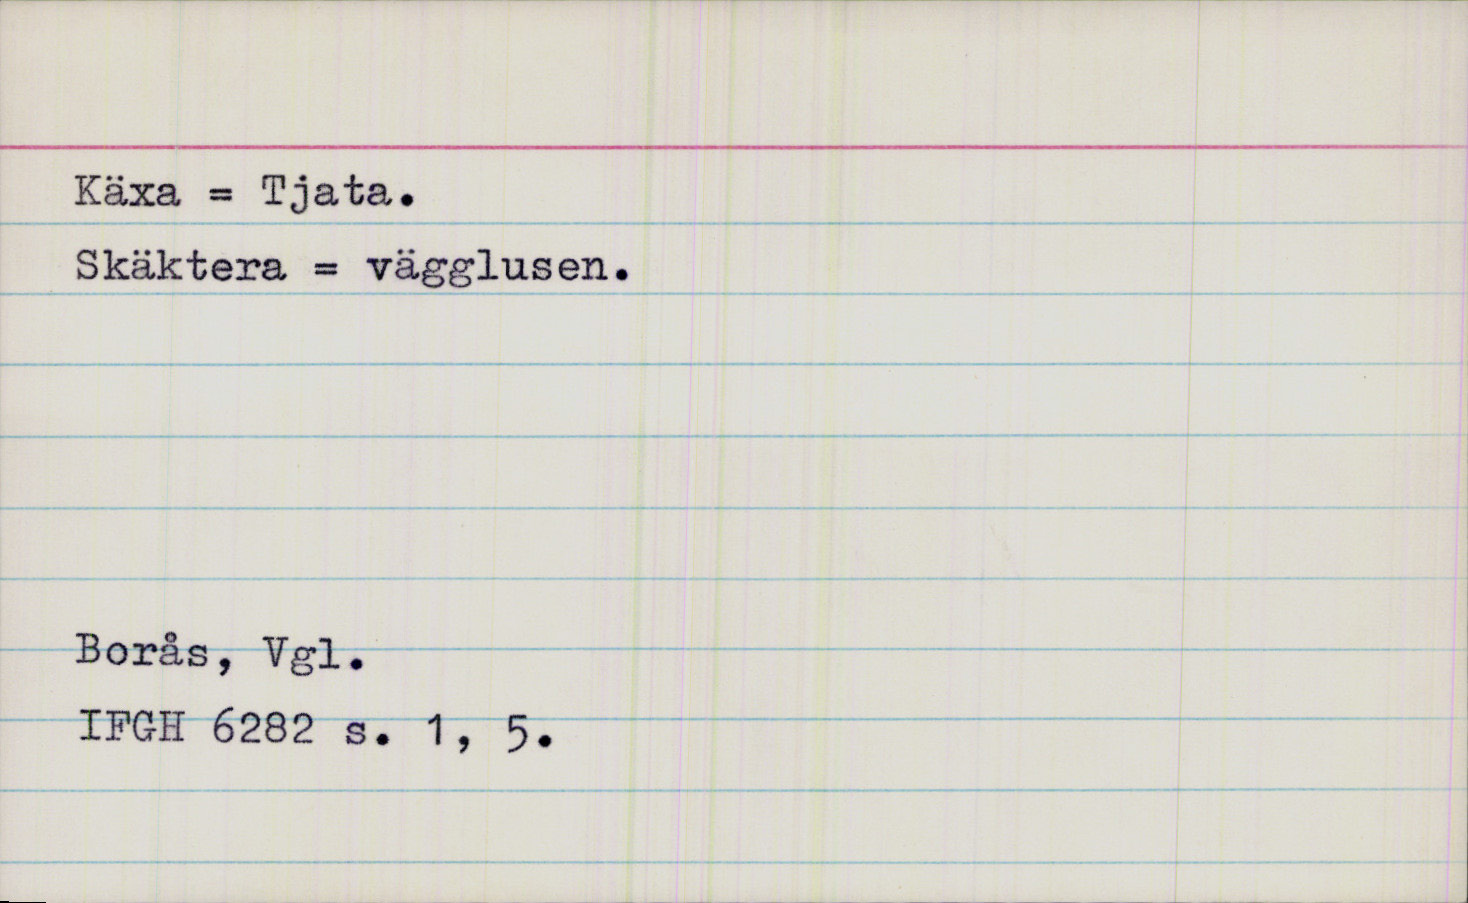 Käxa = Tjata.
Skäktera = vägglusen.
Borås, Vgl.
IFGH 6282 s. 1, 5.